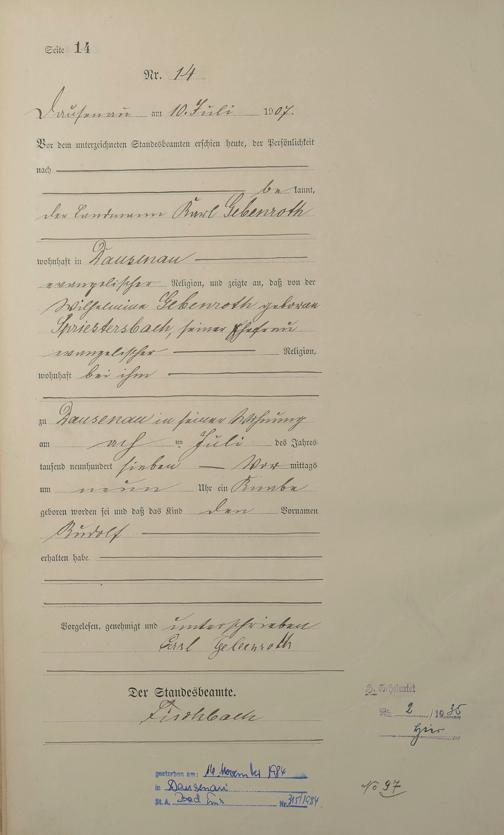 Seite 14
Nr. 14
Dausenau am 10. Juli 1907.
Vor dem unterzeichneten Standesbeamten erschien heute, der Persönlichkeit
nach
be kannt,
der Landmann Karl Gebenroth
wohnhaft in Dausenau
evangelischer Religion, und zeigte an, daß von der
Wilhelmine Gebenroth geborene
Spriestersbach, seiner Ehefrau
evangelischer Religion,
wohnhaft bei ihm
zu Dausenau in seiner Wohnung
am ten Juli des Jahres
tausend neunhundert sieben Vor mittags
um neun Uhr ein Knabe
geboren worden sei und daß das Kind den Vornamen
Rudolf
erhalten habe.
Vorgelesen, genehmigt und unterschrieben
Karl Gebenroth
Der Standesbeamte.
Fischbach
Nr. 2 / 1935
gestorben am: 14. November 1984
in Dausenau
St.A. Bad Ems Nr. 315/1984
No 97